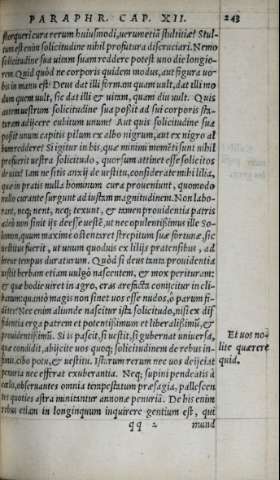 PARAPHR. CAP. XII. 243
storqueri cura rerum huiusmodi, uerumetiā stultitiæ! Stul-
tum est enim solicitudine nihil profutura discruciari. Nemo
solicitudine sua uitam suam reddere potest uno die longio-
rem. Quid quòd ne corporis quidem modus, aut figura uo-
bis in manu est? Deus dat illi formam quam uult, dat illi mo
dum quem uult, sic dat illi & uitam, quam diu uult. Quis
autem uestrūm solicitudine sua possit ad sui corporis sta-
turam adijcere cubitum unum? Aut quis solicitudine sua
possit unum capitis pilum ex albo nigrum, aut ex nigro al
bum reddere? Si igitur in his, quæ minimi momēti sunt nihil
profuerit uestra solicitudo, quorsum attinet esse solicitos
de uita? Iam ne sitis anxij de uestitu, considerate mihi lilia,
quæ in pratis nulla hominum cura proueniunt, quomodo
nullo curante surgunt ad iustam magnitudinem. Non labo-
rant, neq; nent, neq; texunt, & tamen prouidentia patris
adeò non sinit ijs deesse uestē, ut nec opulentissimus ille So-
lomon, quum maximè ostentaret strepitum suæ fortunæ, sic
uestitus fuerit, ut unum quoduis ex lilijs pratensibus, ad
breue tempus duraturum. Quòd si deus tanta prouidentia
uestit herbam etiam uulgò nascentem, & mox perituram:
& quæ hodie uiret in agro, cras arefacta conijcitur in cli-
banum: quantò magis non sinet uos esse nudos, ô parum fi-
dētes? Nec enim aliunde nascitur ista solicitudo, nisi ex dif
fidentia erga patrem et potentissimum et liberalissimū, &
prouidentissimū. Si is pascit, si uestit, si gubernat uniuersa,
quæ condidit, abijcite uos quoq; solicitudinem de rebus in-
fimis, cibo potu, & uestitu. Istarum rerum nec uos deijciat
penuria nec efferat exuberantia. Neq; supini pendeatis à
cœlo, obseruantes omnia tempestatum præsagia, pallescen
tes quoties astra minitantur annonæ penuriā. De his enim
rebus etiam in longinquum inquirere gentium est, qui
Et uos no-
lite quærere
quid,
qq 2 mund